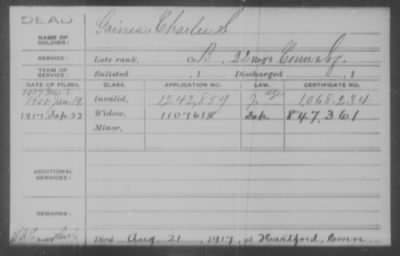 DEAD
NAME OF SOLDIER: Gaines, Charles S
SERVICE: Late rank, Co. B, 22 Regt Conn Inf.
TERM OF SERVICE: Enlisted , 1 Discharged , 1
DATE OF FILING. CLASS. APPLICATION NO. LAW. CERTIFICATE NO.
1900 Jan. 19. Invalid, 1242,859 1068,234
1917 Sep 22 Widow, 1107618 Sep 847,361
Minor,
ADDITIONAL SERVICES:
REMARKS:
Died Aug. 21, 1917, at Hartford, Conn